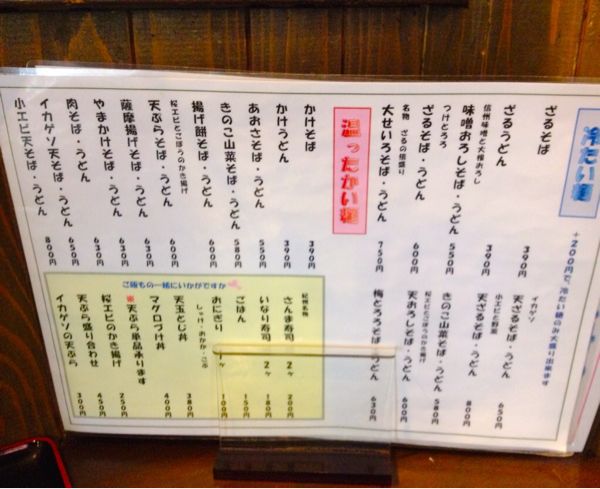 冷たい麺
+200円で、冷たい麺のみ大盛り出来ます
ざるそば 390円
ざるうどん 390円
信州味噌と大根おろし
味噌おろしそば・うどん 550円
つけとろろ
ざるそば・うどん 600円
名物 ざるの倍盛り
大せいろそば・うどん 750円
イカゲソ
天ざるそば・うどん 650円
小エビと野菜
天ざるそば・うどん 800円
きのこ山菜そば・うどん 580円
桜エビとごぼうのかき揚げ
天おろしそば・うどん 600円
梅とろろそば・うどん 630円
温ったかい麺
かけそば 390円
かけうどん 390円
あおさそば・うどん 550円
きのこ山菜そば・うどん 580円
揚げ餅そば・うどん 600円
桜エビとごぼうのかき揚げ
天ぷらそば・うどん 600円
薩摩揚げそば・うどん 630円
やまかけそば・うどん 630円
肉そば・うどん 630円
イカゲソ天そば・うどん 650円
小エビ天そば・うどん 800円
ご飯もの一緒にいかがですか
紀州名物
さんま寿司 2ヶ 200円
いなり寿司 2ヶ 180円
ごはん 150円
おにぎり ヶ 100円
しゃけ・おかか・こぶ
天玉とじ丼 380円
マグロづけ丼 400円
※天ぷら単品承ります
桜エビのかき揚げ 250円
天ぷら盛り合わせ 450円
イカゲソの天ぷら 300円